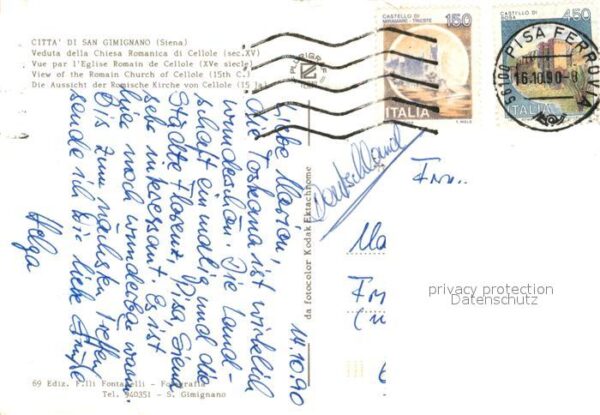 CITTA' DI SAN GIMIGNANO (Siena)
Veduta della Chiesa Romanica di Cellole (sec.XV)
Vue par l'Eglise Romain de Cellole (XVe siecle)
View of the Romain Church of Cellole (15th C.)
Die Aussicht der Romische Kirche von Cellole (15 Ja)
CASTELLO DI
MIRAMARE - TRIESTE
150
ITALIA
CASTELLO DI
450
ITALIA
56100 PISA FERROVIA
16.10.90-8
14.10.90
Liebe Marion,
die Toskana ist wirklich
wunderschön. Die Land-
schaft einmalig und die
Städte Florenz, Pisa, Siena
sehr interessant. Es ist
hier noch wunderbar warm.
Bis zum nächsten Treffen
sende ich Dir liebe Grüße
Helga
da fotocolor Kodak Ektachrome
Deutschland
Frau
Ma
privacy protection
Datenschutz
69 Ediz. F.lli Fontanelli - Fotografia
Tel. 940351 - S. Gimignano